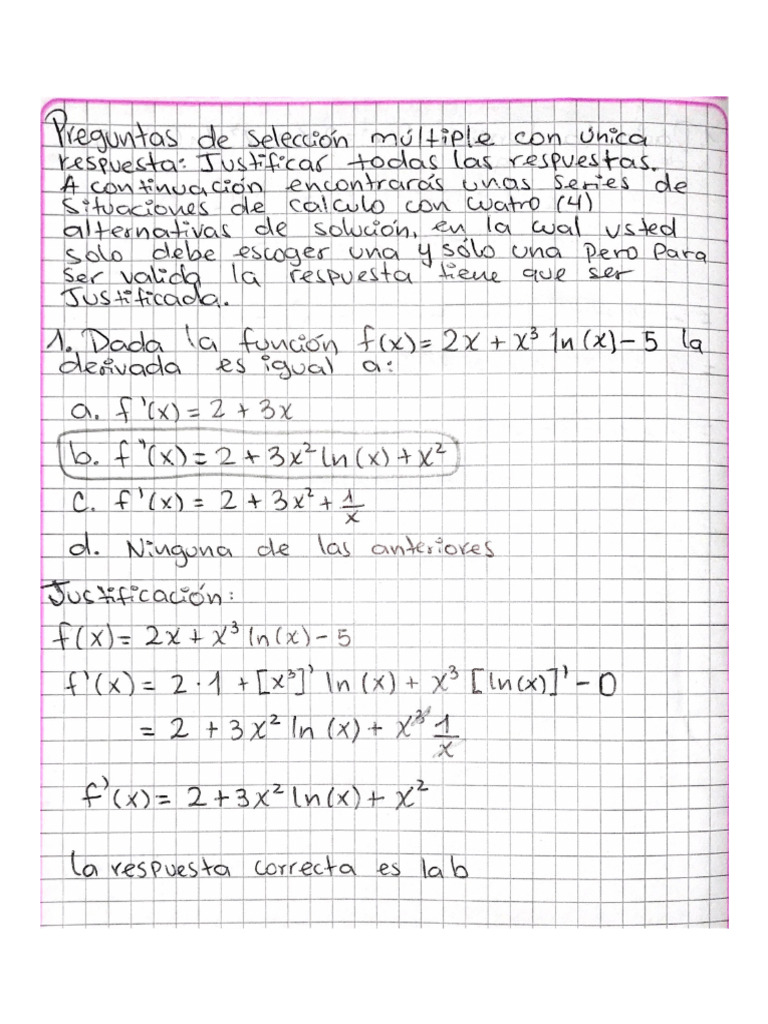 Preguntas de selección múltiple con única
respuesta: Justificar todas las respuestas.
A continuación encontrarás unas series de
Situaciones de calculo con cuatro (4)
alternativas de solución, en la cual usted
solo debe escoger una y sólo una pero para
ser valida la respuesta tiene que ser
Justificada.
1. Dada la función f(x) = 2x + x³ ln(x) - 5 la
derivada es igual a:
a. f'(x) = 2 + 3x
b. f"(x) = 2 + 3x² ln(x) + x²
c. f'(x) = 2 + 3x² + 1/x
d. Ninguna de las anteriores
Justificación:
f(x) = 2x + x³ ln(x) - 5
f'(x) = 2 · 1 + [x³]' ln(x) + x³ [ln(x)]' - 0
= 2 + 3x² ln(x) + x³ 1/x
f'(x) = 2 + 3x² ln(x) + x²
la respuesta correcta es la b